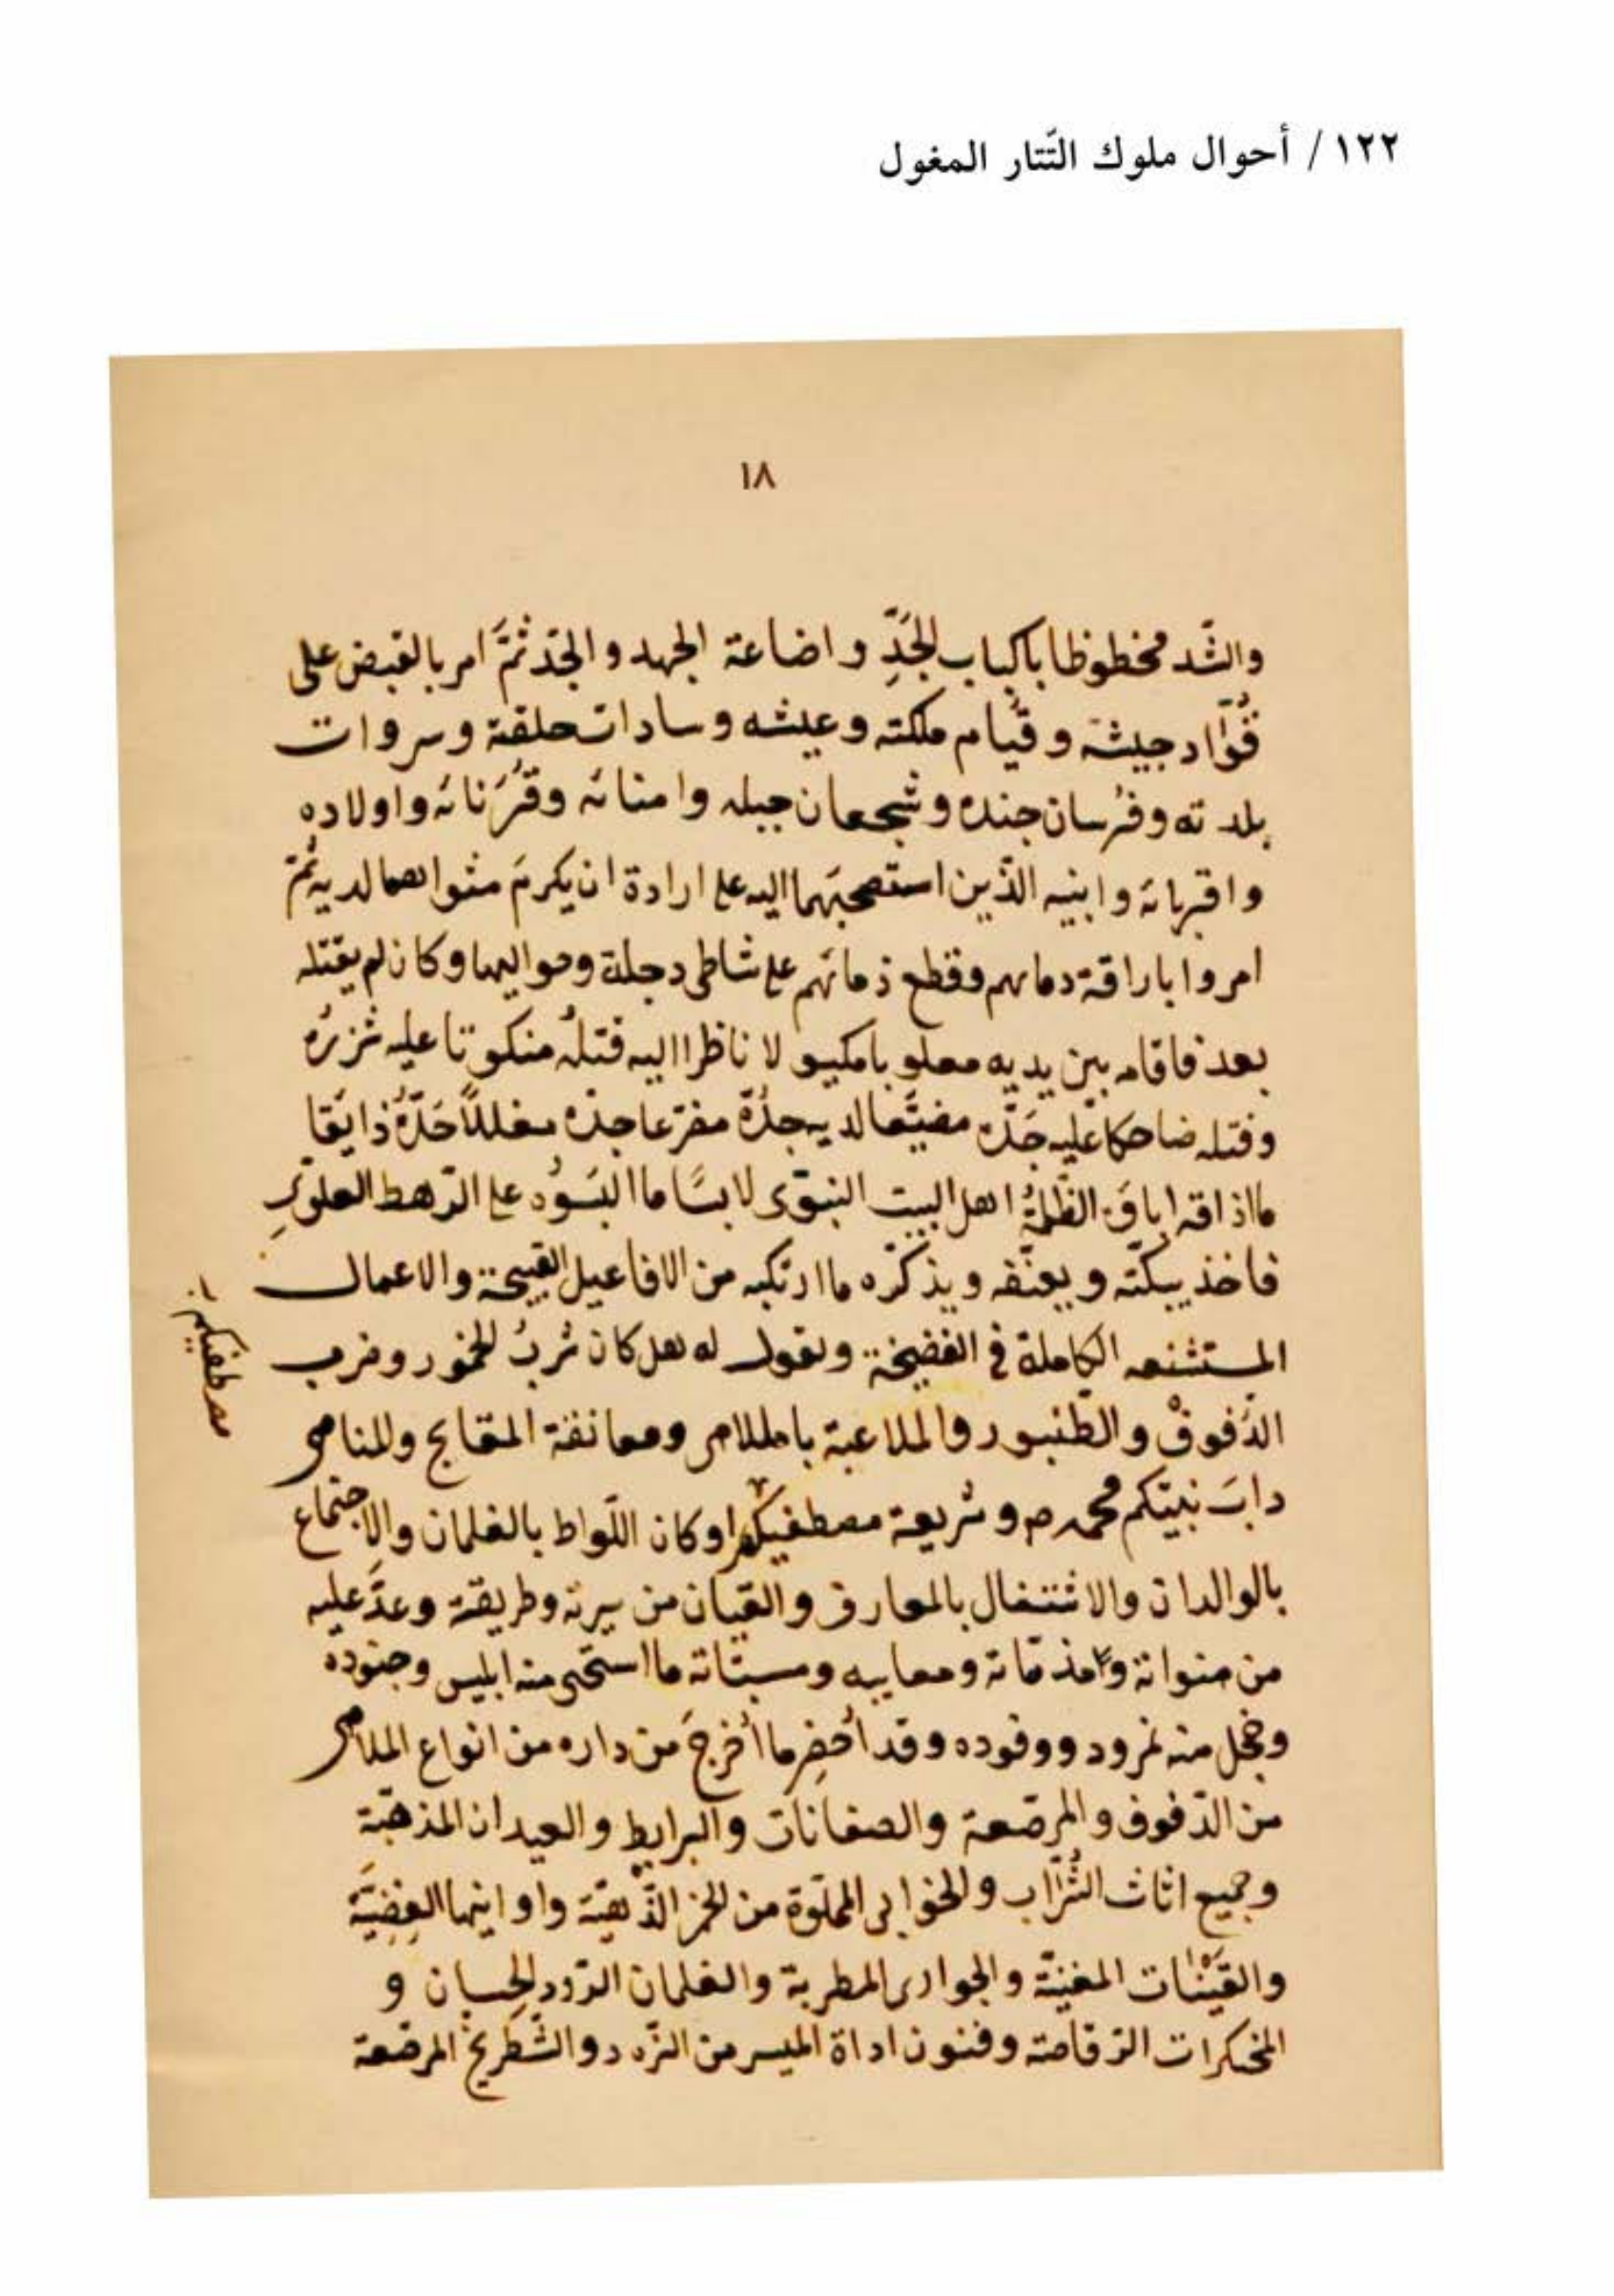 ١٢٢ / أحوال ملوك التّتار المغول
١٨
والشّد مخطوظا باكباب الجَدِّ و اضاعة الجهد و الجَدّ ثمَّ امر بالقبض على
قُوّاد جيشة و قيام ملكته و عيشه و سادات حلقة و سروات
بلدته و فرسان جنده و شجعان جيله و امنائه و قُرَنائه و اولاده
و اقربائه و ابنيه الذّين استصحبَهما اليه على ارادة ان يكرمَ مثواهما لديه ثُمّ
امروا باراقة دمائهم وقطع ذمائهم على شاطى دجلة وحواليها و كان لم يقتله
بعد فاقامه بين يديه لا ناظرا اليه قتلُه منكوتا عليه شزرُه
و قتله ضاحكا عليه جَدّه لديه جدُّه مفزعا جدّه مغللاً حَدّهُ ذايَقا
ما اذاقه اباقَ الظّلمةُ اهل البيت النبوّى لابسًا ما البَسَوُه على الرّهط العلوىّ
فاخذ يبكّته و يعنّفه و يذكّره ما ارتكبه من الافاعيل القبيحة و الاعمال
المستشنعه الكاملة فى الفضيخة و يقول له هل كان شُربُ الخمور و ضرب
الدّفوف و الطّنبور و الملاعبة بالملاهى ومعانقة المقابح والمناهى
دابَ نبيّكم محمد ص و شريعة مصطفيكم او كان اللّواط بالغلمان والاجتماع
بالوالدان والاشتغال بالمعارف و القيان من سيرته وطريقته وعدَّ عليه
من مذمّاته ومعايبه ومسبّاتة ما استحى منه ابليس وجنوده
وخجل منه نمرود ووفوده وقد اُحضِر ما اُخرجَ من داره من انواع الملاهى
من الدّفوف و المرصّعة والصغانات والبرابط والعيدان المذهّبة
وجميع اثاث الشُرّاب و الخوابى المملّوة من الخمر و اوانيها الفِضِيَّة
والقَيْنات المغنيّة و الجوارى المطربة والغلمان الحِسان و
الرّقاصّة و فنون اداة الميسر من النّرد و الشّطرنج المرصّعة
مصطفيكم